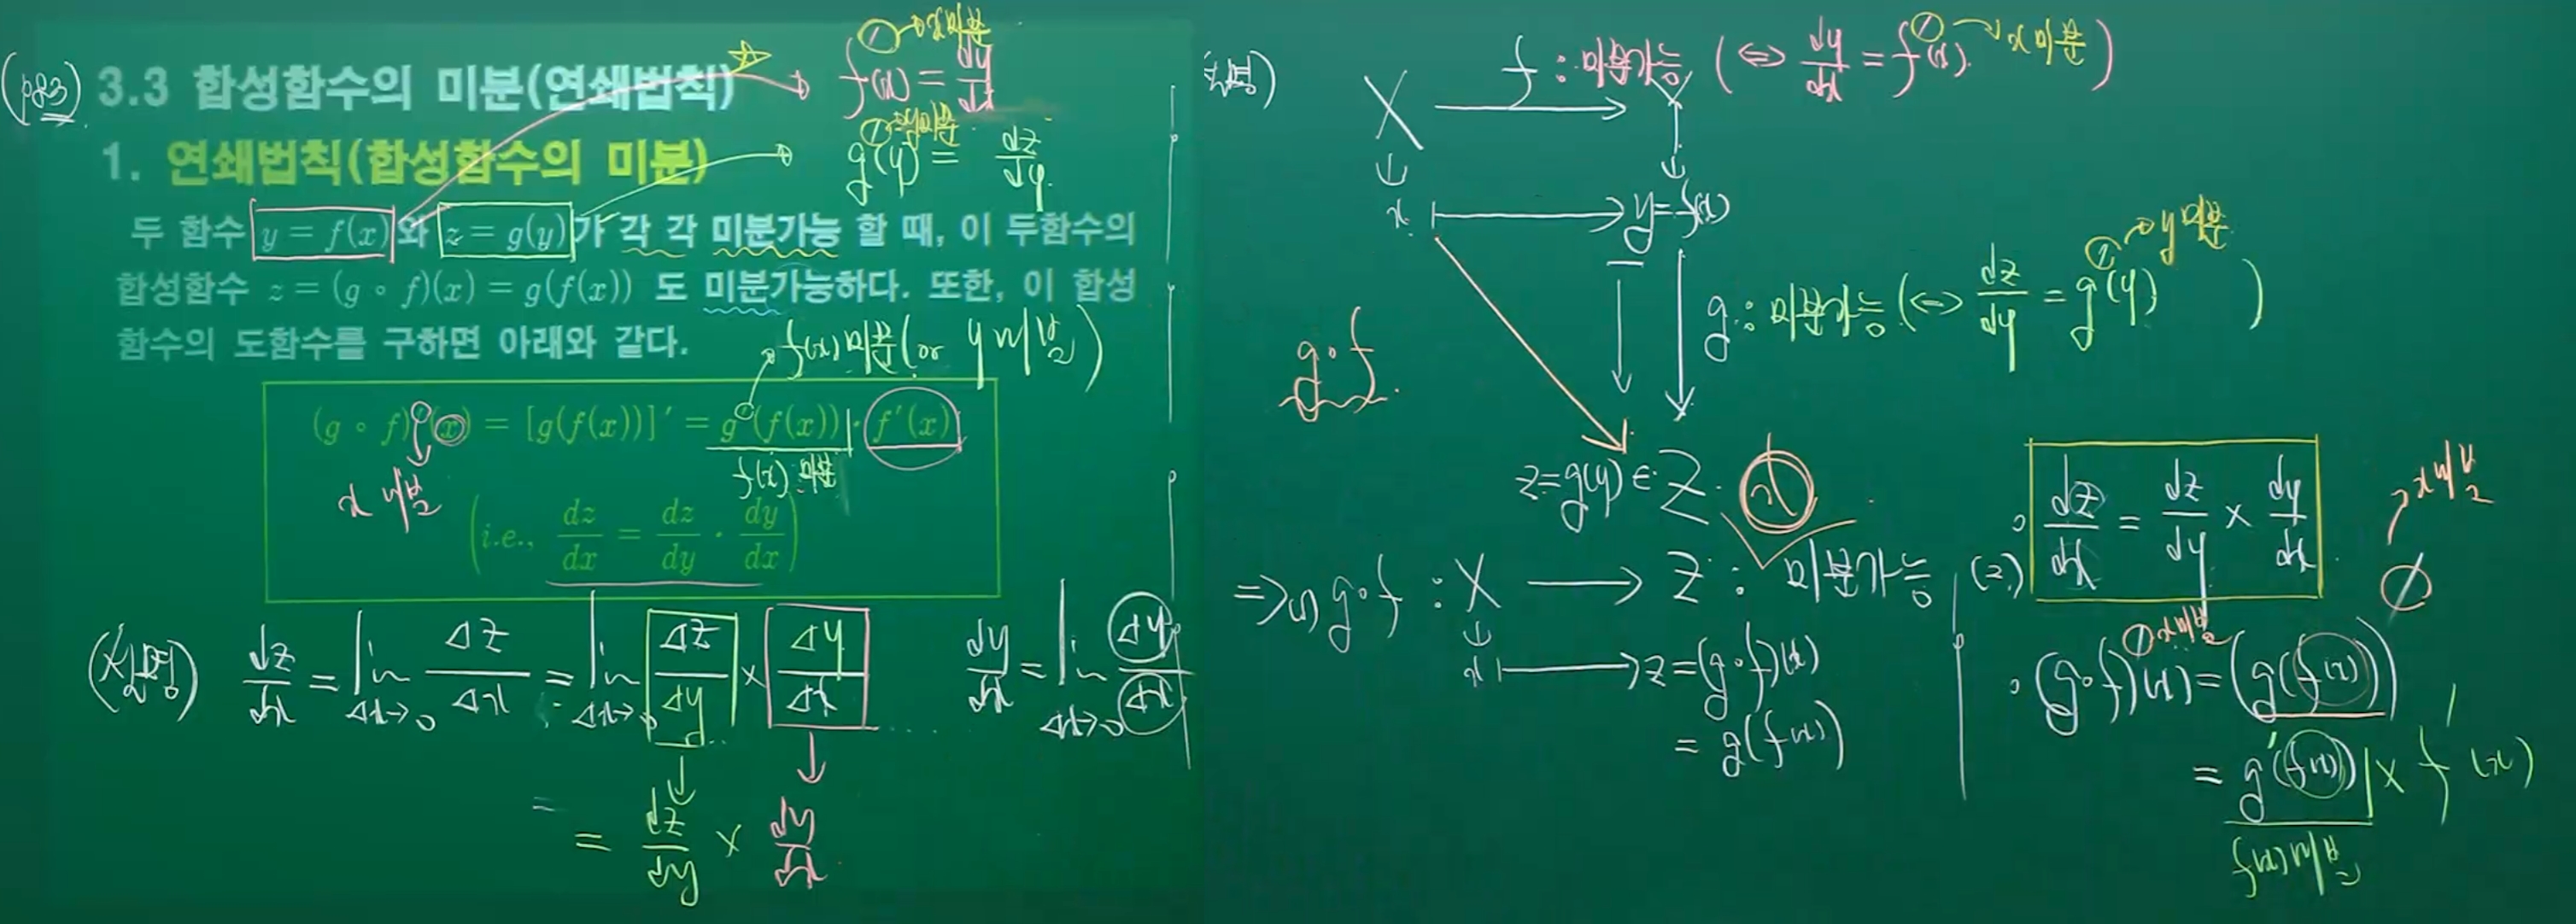 (p83)
3.3 합성함수의 미분(연쇄법칙)
f'(x) = dy/dx
x미분
1. 연쇄법칙(합성함수의 미분)
g'(y) = dz/dy
y미분
두 함수 y = f(x) 와 z = g(y) 가 각 각 미분가능 할 때, 이 두함수의
합성함수 z = (g ∘ f)(x) = g(f(x)) 도 미분가능하다. 또한, 이 합성
함수의 도함수를 구하면 아래와 같다.
f(x)미분 (or y미분)
(g ∘ f)'(x) = [g(f(x))]' = g'(f(x)) · f'(x)
x미분
f(x) 미분
(i.e., dz/dx = dz/dy · dy/dx)
(설명) dz/dx = lim Δx→0 Δz/Δx = lim Δx→0 Δz/Δy × Δy/Δx
dy/dx = lim Δx→0 Δy/Δx
= dz/dy × dy/dx
(설명)
X f : 미분가능 (⇔ dy/dx = f'(x)) x미분
Y
x y=f(x)
g : 미분가능 (⇔ dz/dy = g'(y)) y미분
g∘f
z=g(y) ∈ Z
x
⇒ (1) g∘f : X → Z : 미분가능
x → z = (g∘f)(x)
= g(f(x))
(2) dz/dx = dz/dy × dy/dx
x미분
(g∘f)'(x) = (g(f(x)))'
x미분
= g'(f(x)) × f'(x)
f(x)미분